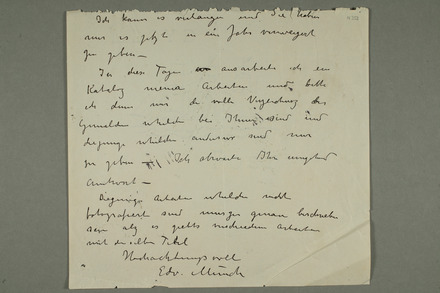 Ich kann es verlangen und Sie haben
nun es jetzt in ein Jahr verweigert
zu geben –
In diese Tage ausarbeite ich ein
Katalog meiner Arbeiten und bitte
die volle des
Gemälden welche bei Ihnen sind und
welche anderswo sind mir
zu geben – Ich erwarte Ihre umgehend
Antwort –
Diejenige Arbeiten welche nicht
fotografiert sind genau
sein als es giebt verschiedene Arbeiten
mit dieselben Titel
Hochachtungsvoll
Edv. Munch